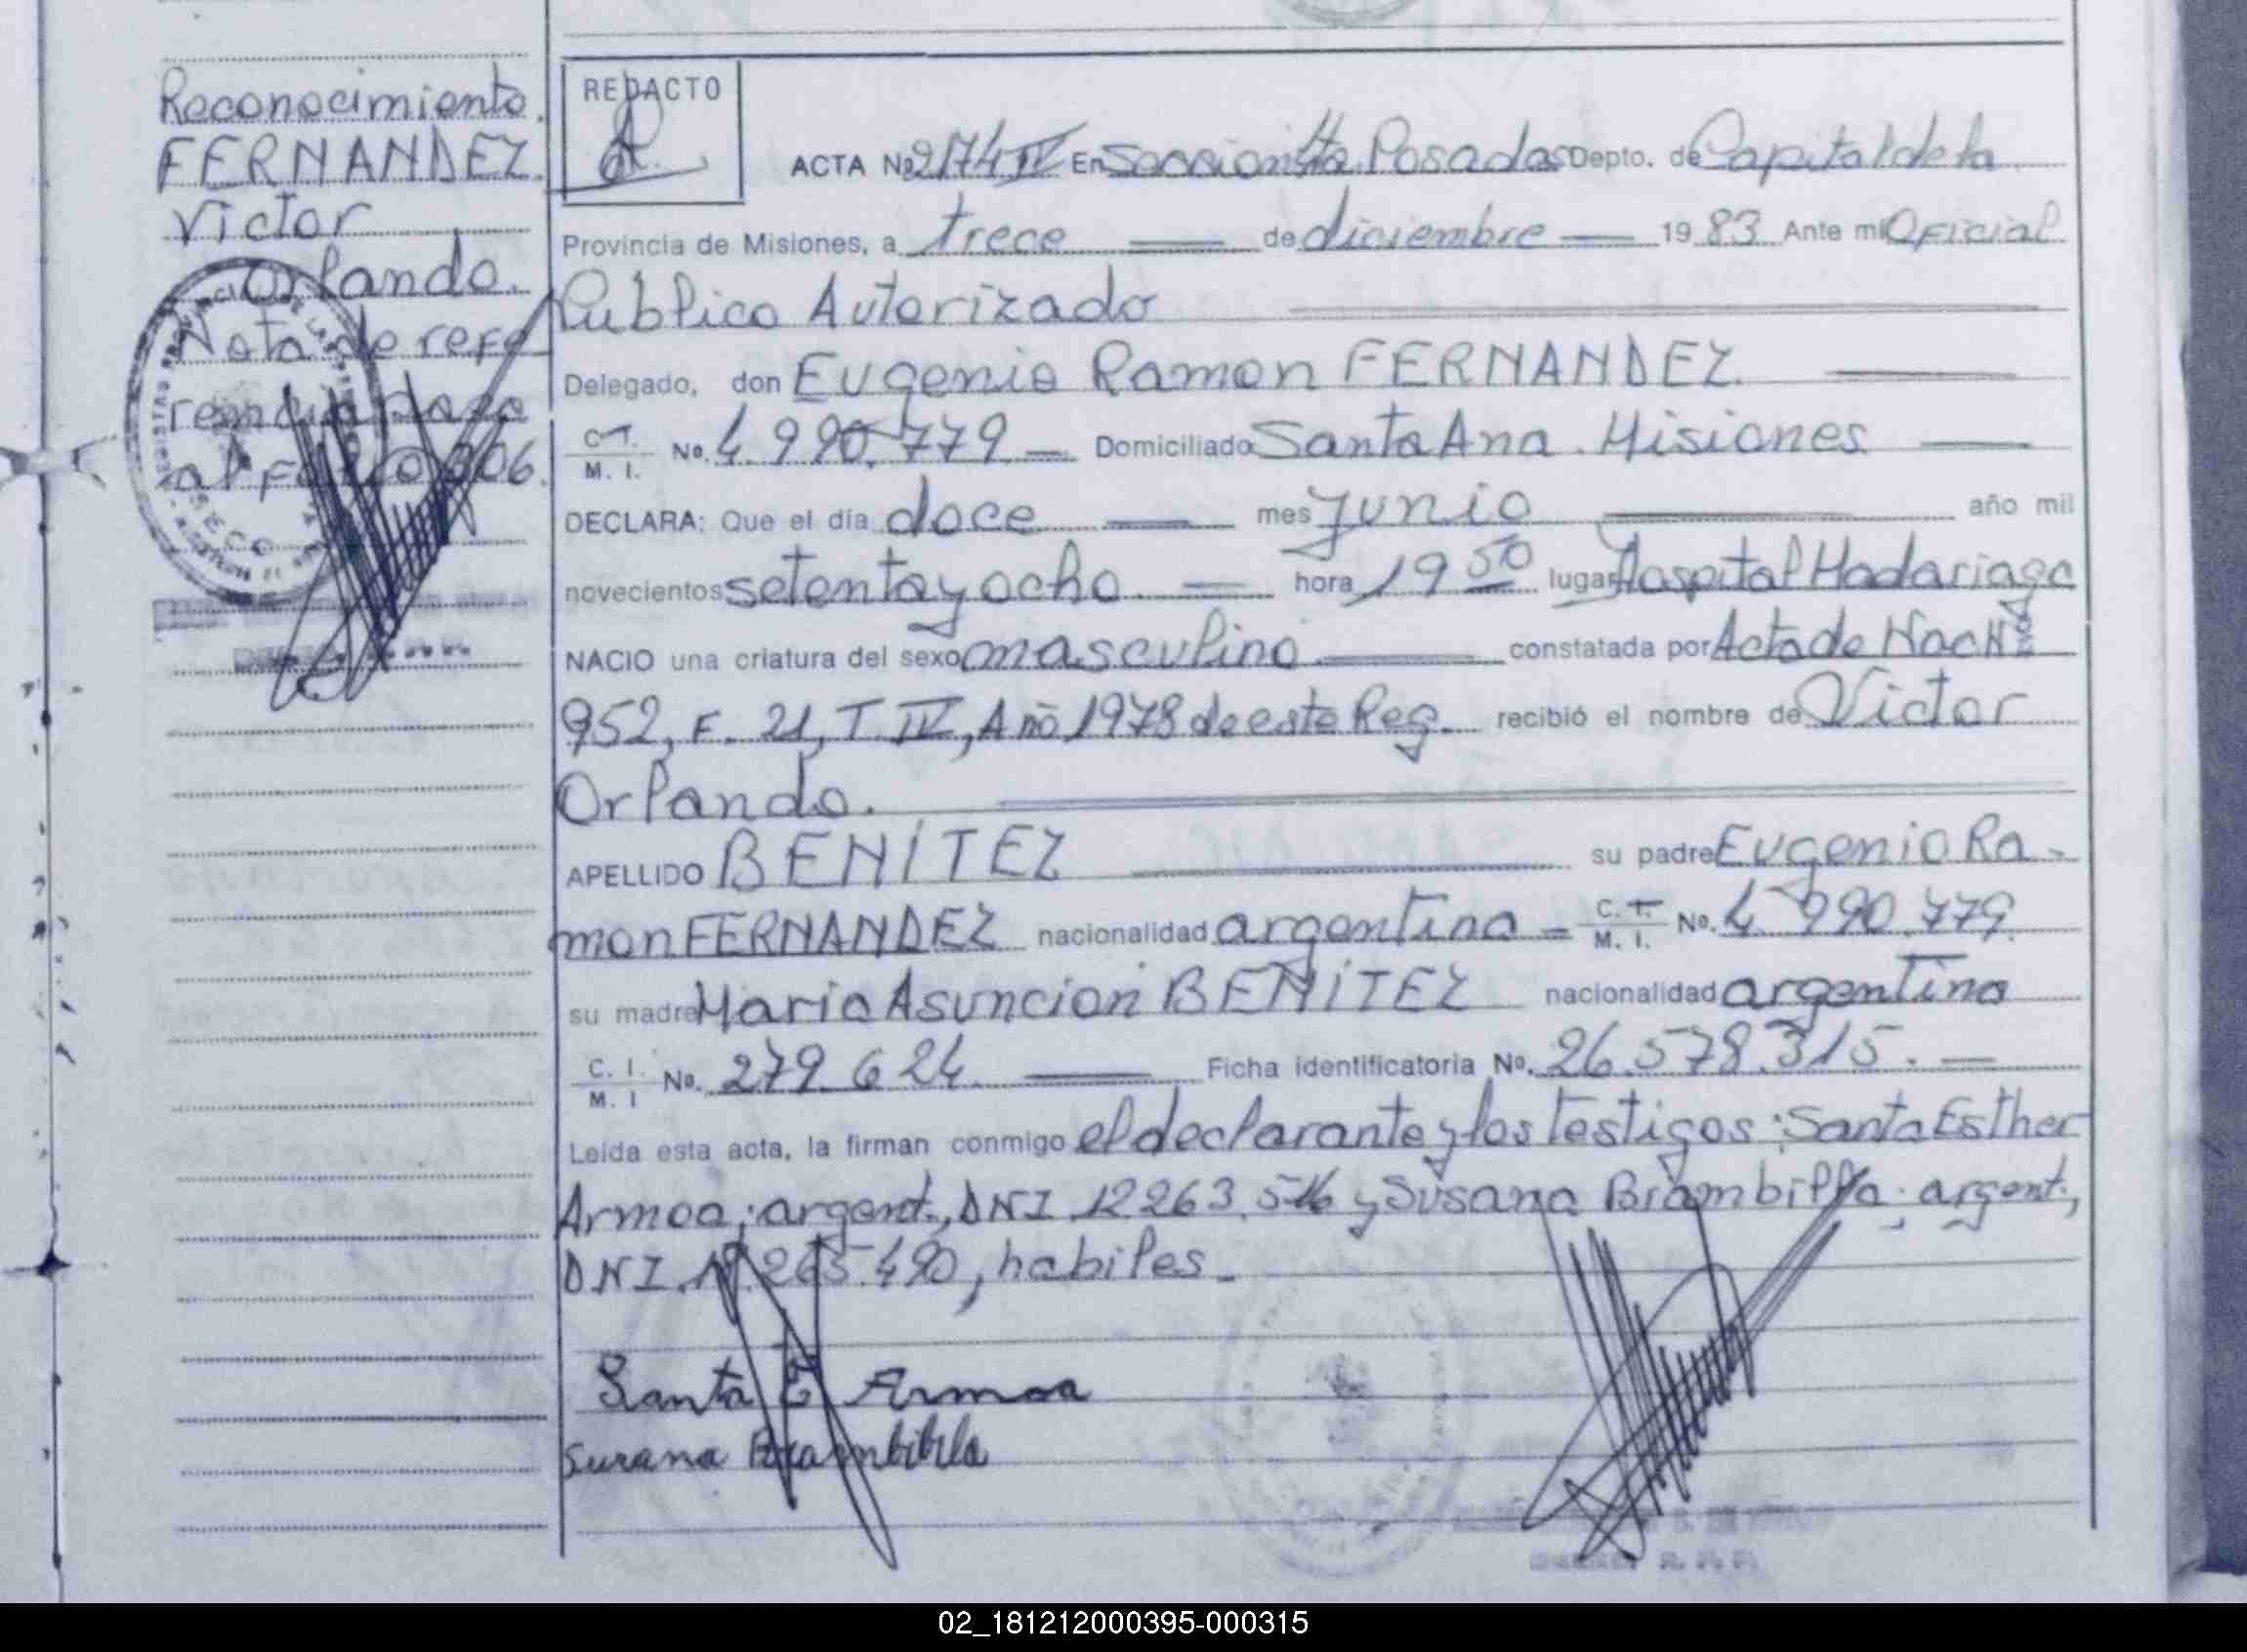 Reconocimiento.
FERNANDEZ
Victor
Orlando.
Nota de refe
rencia
al Folio 206.
REDACTO
ACTA Nº 2174 IV En Sección 4ta. Posadas Depto. de Capital de la
Provincia de Misiones, a trece de diciembre 19 83 Ante mi Oficial
Publico Autorizado
Delegado, don Eugenio Ramon FERNANDEZ
C.I. M. I. No. 4.990.779 Domiciliado Santa Ana. Misiones
DECLARA: Que el día doce mes Junio año mil
novecientos setenta y ocho hora 19 50 lugar Hospital Madariaga
NACIO una criatura del sexo masculino constatada por Acta de Nac Nº
952, F. 21, T. IV, Año 1978 de este Reg. recibió el nombre de Victor
Orlando.
APELLIDO BENITEZ su padre Eugenio Ra-
mon FERNANDEZ nacionalidad argentina C.I. M. I. No. 4.990.779.
su madre Maria Asuncion BENITEZ nacionalidad argentina
C. I. M. I No. 279.624 Ficha identificatoria No. 26.578.315.
Leida esta acta, la firman conmigo el declarante y los testigos: Santa Esther
Armoa; argent., DNI 12.263.516 y Susana Brambilla; argent.,
DNI 265.490, habiles.
Santa E Armoa
Susana Brambilla
02_181212000395-000315